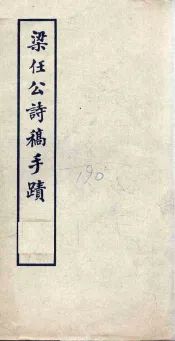 梁任公詩稿手蹟
190